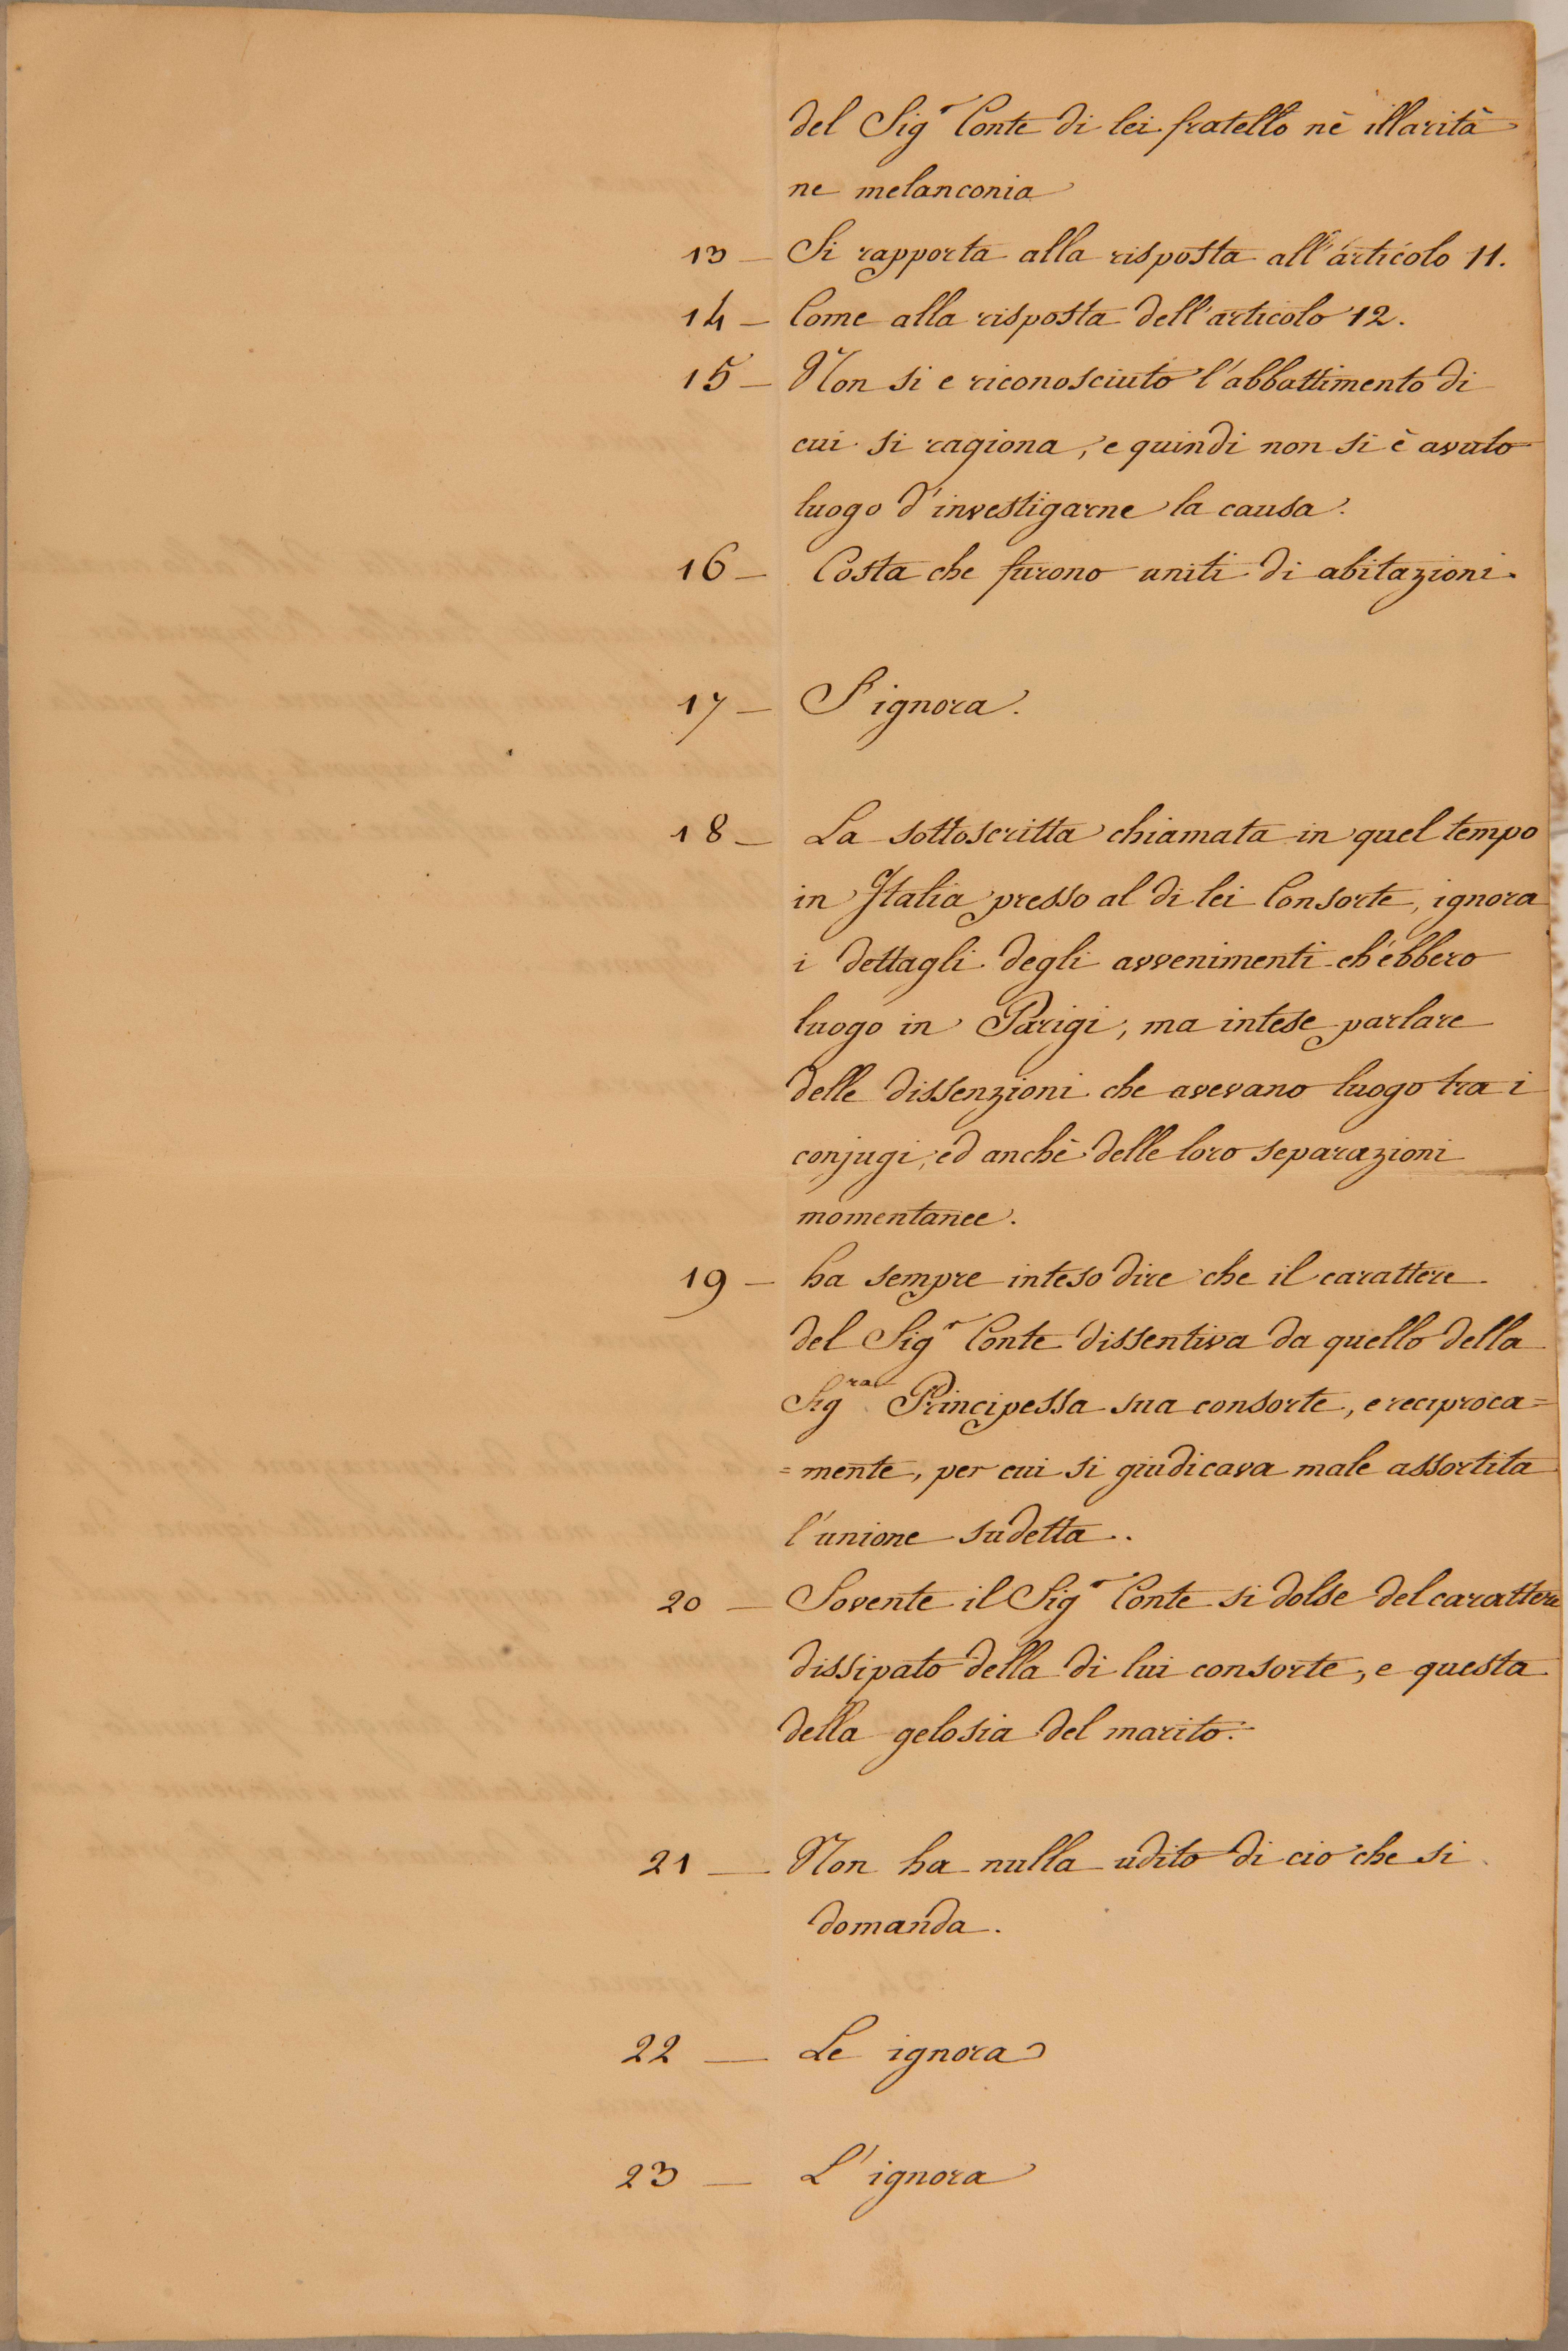 del Sigʳ Conte di lei fratello nè illarità
ne melanconia
13 — Si rapporta alla risposta all'articolo 11.
14 — Come alla risposta dell'articolo 12.
15 — Non si e riconosciuto l'abbattimento di
cui si ragiona, e quindi non si è avuto
luogo d'investigarne la causa.
16 — Costa che furono uniti di abitazioni.
17 — S'ignora.
18 — La sottoscritta chiamata in quel tempo
in Italia presso al di lei Consorte, ignora
i dettagli degli avvenimenti ch'ebbero
luogo in Parigi, ma intese parlare
delle dissenzioni che avevano luogo tra i
conjugi, ed anchè delle loro separazioni
momentanee.
19 — ha sempre inteso dire che il carattere
del Sigʳ Conte dissentiva da quello della
Sigʳᵃ Principessa sua consorte, e reciproca=
=mente, per cui si giudicava male assortita
l'unione sudetta.
20 — Sovente il Sigʳ Conte si dolse del carattere
dissipato della di lui consorte, e questa
della gelosia del marito.
21 — Non ha nulla udito di cio che si
domanda.
22 — Le ignora
23 — L'ignora